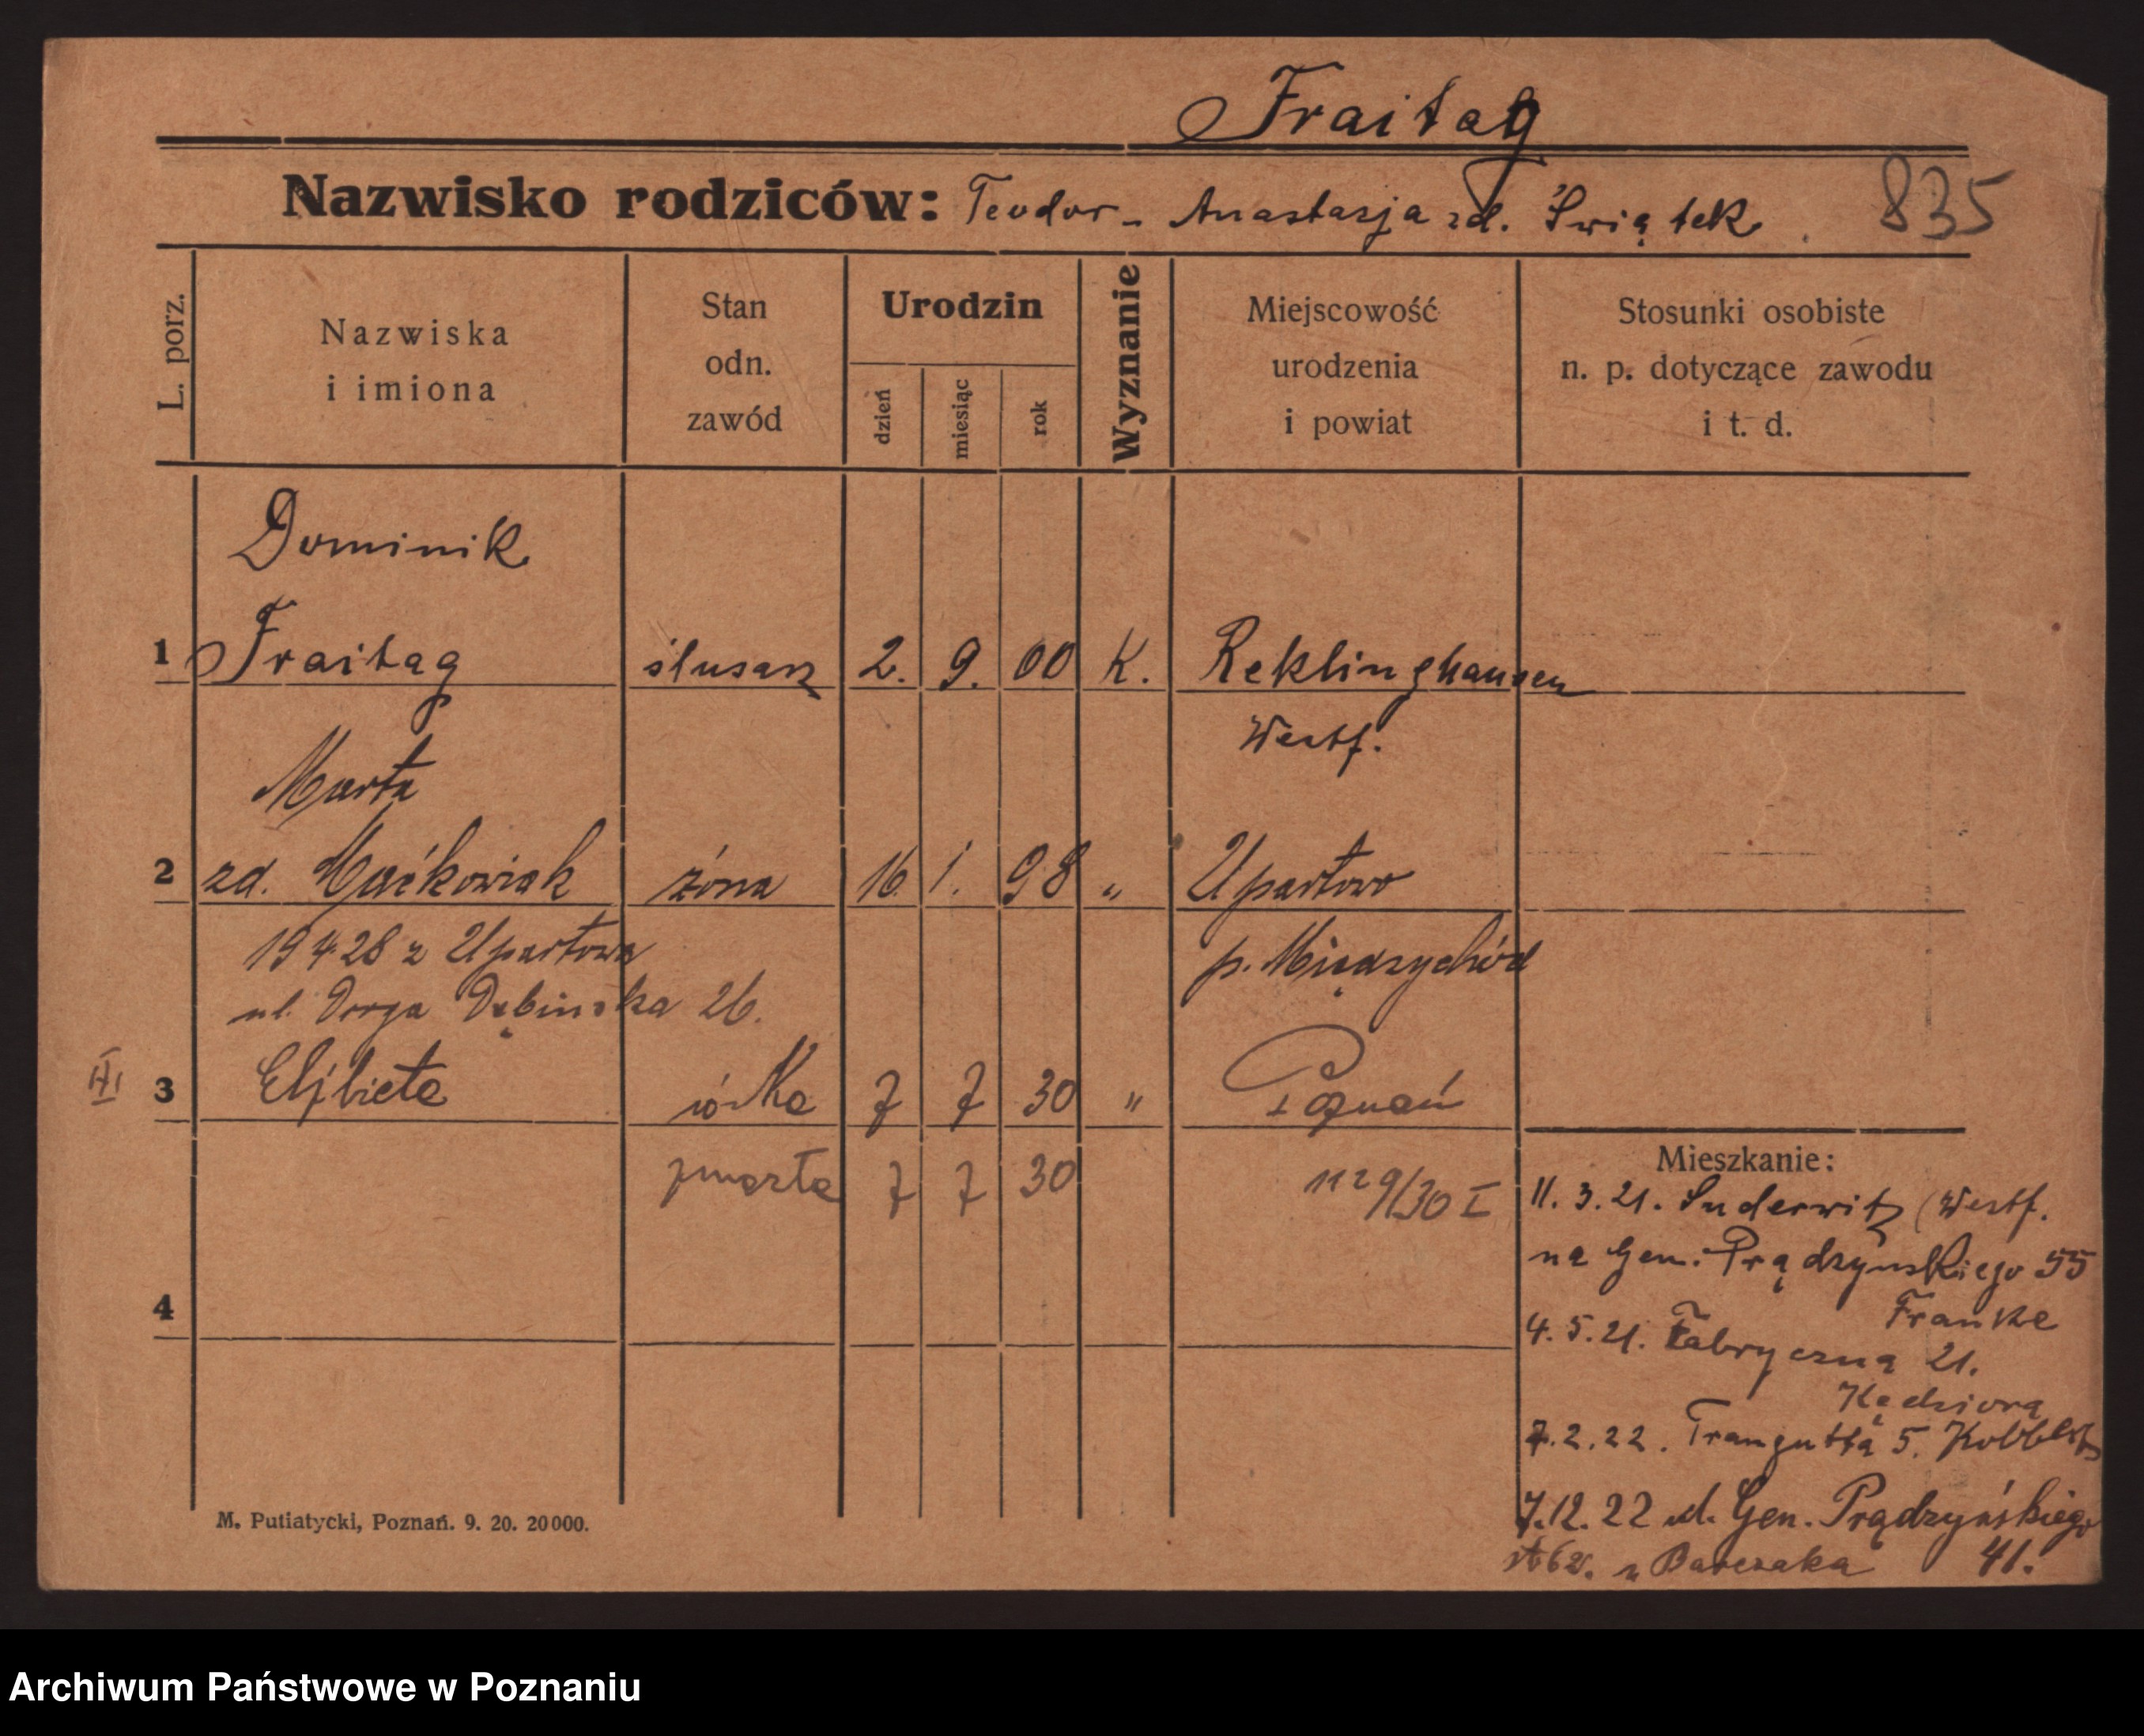 Fraitag
Nazwisko rodziców: Teodor - Anastasja zd. Świątek. 835
L. porz.
Nazwiska
i imiona
Stan
odn.
zawód
Urodzin
dzień
miesiąc
rok
Wyznanie
Miejscowość
urodzenia
i powiat
Stosunki osobiste
n. p. dotyczące zawodu
i t. d.
Dominik
1 Fraitag ślusarz 2. 9. 00 K. Reklinghausen
Westf.
Marta
2 zd. Maćkowiak żona 16. 1. 98 „ Upartowo
19 4 28 z Upartowa p. Międzychód
ul. Droga Dębinska 26.
3 Elżbieta córka 7 7 30 „ Poznań
zmarła 7 7 30 112 9/30 I
4
Mieszkanie:
11. 3. 21. Suderwitz (Westf.
na Gen. Prądzynskiego 55
Franke
4. 5. 21. Fabryczną 21.
Kędziorą
7. 2. 22. Traugutta 5.
7. 12. 22 ul. Gen. Prądzyńskiego
u Barczaka 41.
M. Putiatycki, Poznań. 9. 20. 20000.
Archiwum Państwowe w Poznaniu